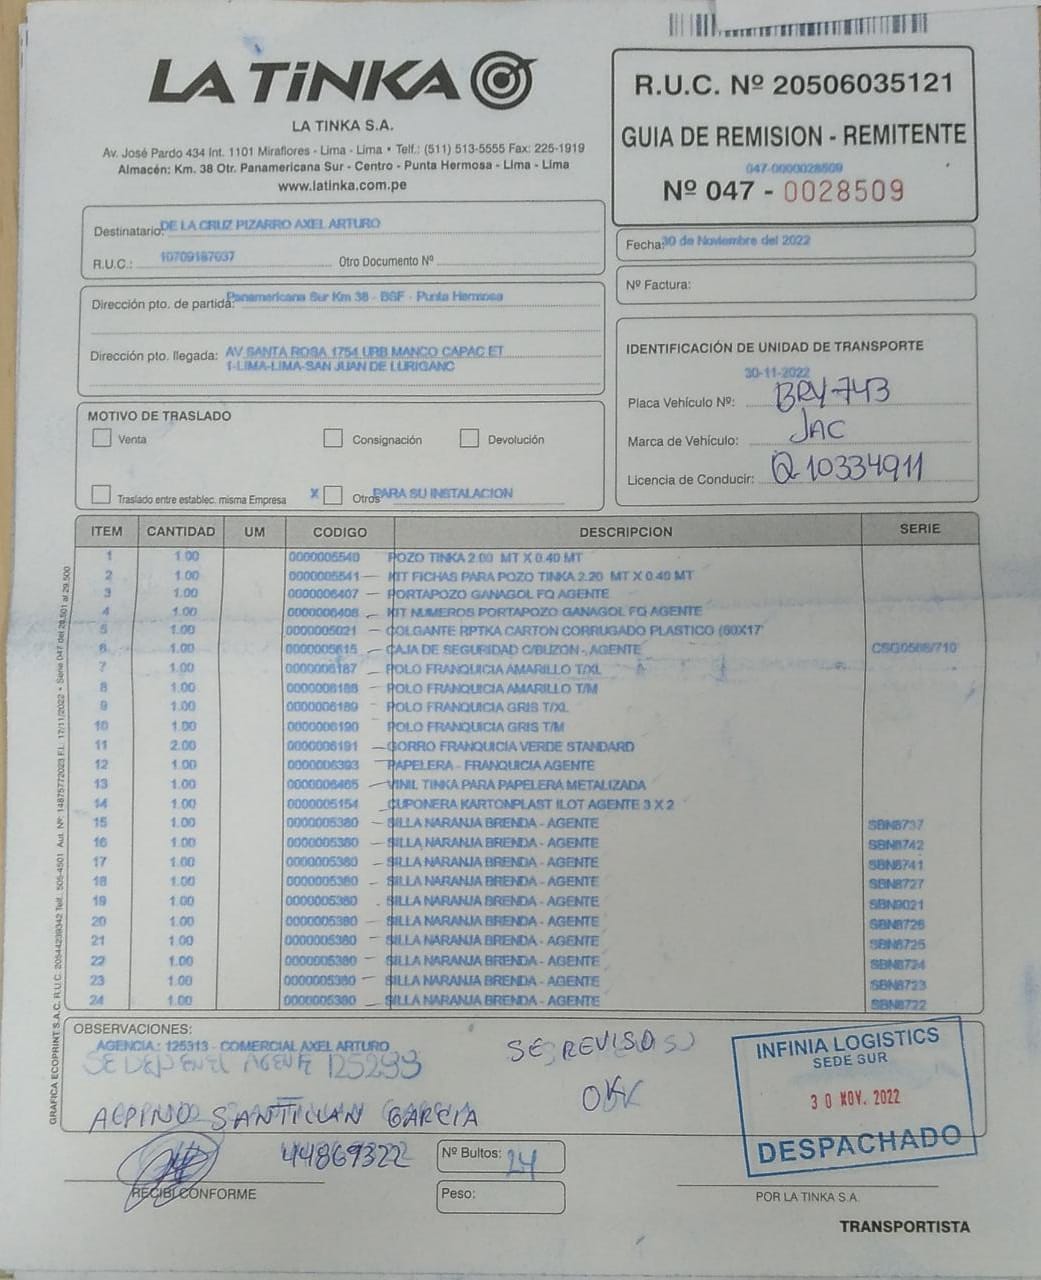 LA TiNKA
LA TINKA S.A.
Av. José Pardo 434 Int. 1101 Miraflores - Lima - Lima • Telf.: (511) 513-5555 Fax: 225-1919
Almacén: Km. 38 Otr. Panamericana Sur - Centro - Punta Hermosa - Lima - Lima
www.latinka.com.pe
R.U.C. Nº 20506035121
GUIA DE REMISION - REMITENTE
047-0000028509
Nº 047 - 0028509
Destinatario: DE LA CRUZ PIZARRO AXEL ARTURO
R.U.C.: 10709187037 Otro Documento Nº
Fecha: 30 de Noviembre del 2022
Nº Factura:
Dirección pto. de partida: Panamericana Sur Km 38 - BSF - Punta Hermosa
Dirección pto. llegada: AV SANTA ROSA 1754 URB MANCO CAPAC ET
1-LIMA-LIMA-SAN JUAN DE LURIGANC
IDENTIFICACIÓN DE UNIDAD DE TRANSPORTE
30-11-2022
Placa Vehículo Nº: BRY-743
Marca de Vehículo: JAC
Licencia de Conducir: Q10334911
MOTIVO DE TRASLADO
Venta Consignación Devolución
Traslado entre establec. misma Empresa X Otros PARA SU INSTALACION
ITEM CANTIDAD UM CODIGO DESCRIPCION SERIE
1 1.00 0000005540 POZO TINKA 2.00 MT X 0.40 MT
2 1.00 0000005541 KIT FICHAS PARA POZO TINKA 2.20 MT X 0.40 MT
3 1.00 0000006407 PORTAPOZO GANAGOL FQ AGENTE
4 1.00 0000006408 KIT NUMEROS PORTAPOZO GANAGOL FQ AGENTE
5 1.00 0000005021 COLGANTE RPTKA CARTON CORRUGADO PLASTICO (60X17
6 1.00 0000005615 CAJA DE SEGURIDAD C/BUZON - AGENTE
7 1.00 0000006187 POLO FRANQUICIA AMARILLO T/XL
8 1.00 0000006188 POLO FRANQUICIA AMARILLO T/M
9 1.00 0000006189 POLO FRANQUICIA GRIS T/XL
10 1.00 0000006190 POLO FRANQUICIA GRIS T/M
11 2.00 0000006191 GORRO FRANQUICIA VERDE STANDARD
12 1.00 0000006393 PAPELERA - FRANQUICIA AGENTE
13 1.00 0000006465 VINIL TINKA PARA PAPELERA METALIZADA
14 1.00 0000005154 CUPONERA KARTONPLAST ILOT AGENTE 3 X 2
15 1.00 0000005380 SILLA NARANJA BRENDA - AGENTE SBN8737
16 1.00 0000005380 SILLA NARANJA BRENDA - AGENTE SBN8742
17 1.00 0000005380 SILLA NARANJA BRENDA - AGENTE SBN8741
18 1.00 0000005380 SILLA NARANJA BRENDA - AGENTE SBN8727
19 1.00 0000005380 SILLA NARANJA BRENDA - AGENTE SBN9021
20 1.00 0000005380 SILLA NARANJA BRENDA - AGENTE SBN8726
21 1.00 0000005380 SILLA NARANJA BRENDA - AGENTE SBN8725
22 1.00 0000005380 SILLA NARANJA BRENDA - AGENTE SBN8724
23 1.00 0000005380 SILLA NARANJA BRENDA - AGENTE SBN8723
24 1.00 0000005380 SILLA NARANJA BRENDA - AGENTE SBN8722
OBSERVACIONES:
AGENCIA: 125313 - COMERCIAL AXEL ARTURO
AGENTE 125293
SE REVISO
OK
ALPINO SANTILLAN GARCIA
44869322
RECIBI CONFORME
Nº Bultos: 24
Peso:
INFINIA LOGISTICS
SEDE SUR
30 NOV. 2022
DESPACHADO
POR LA TINKA S.A.
TRANSPORTISTA